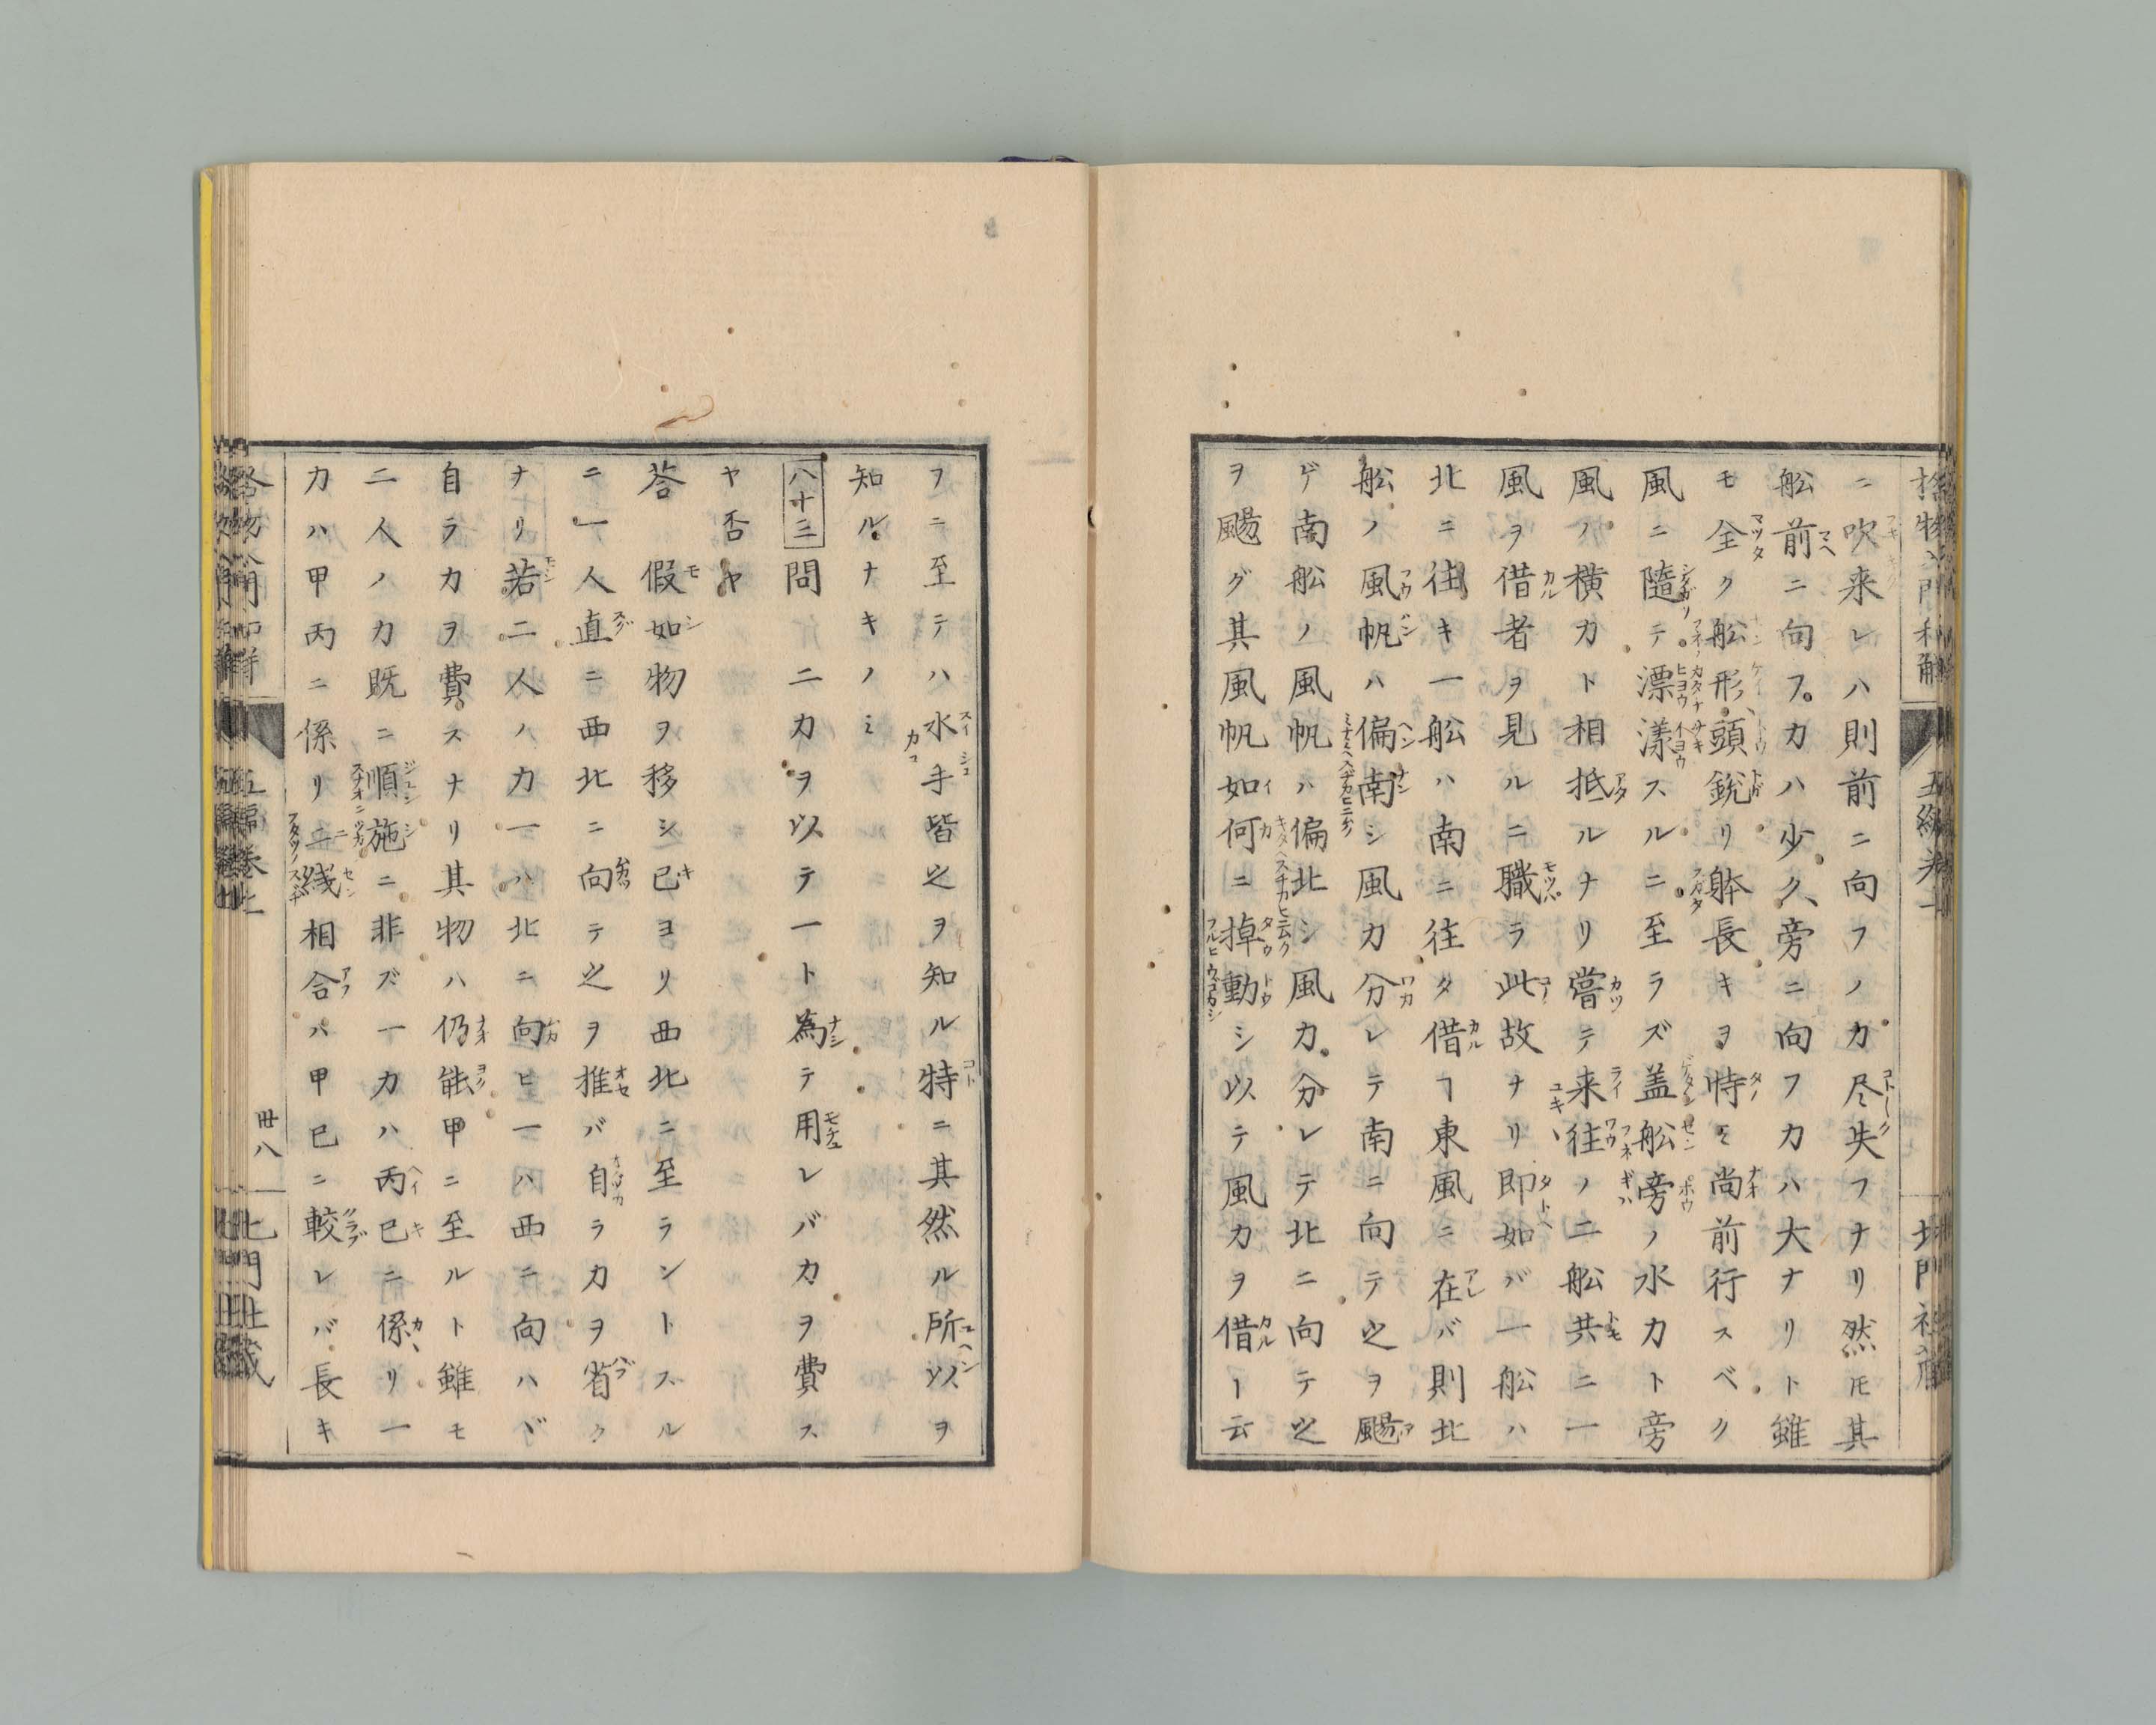 ニ吹来レハ則前ニ向フノ力尽失フナリ然𪜈其
舩前ニ向フ力ハ少ク旁ニ向フ力ハ大ナリト雖
モ全ク舩形頭鋭リ躰長キヲ恃ミ尚前行スベク
風ニ隨テ漂漾スルニ至ラズ盖舩旁ノ水力ト旁
風ノ横力ト相抵ルナリ嘗テ来往ノ二舩共ニ一
風ヲ借者ヲ見ルニ職ラ此故ナリ即如バ一舩ハ
北ニ往キ一舩ハ南ニ往タ借ヿ東風ニ在バ則北
舩ノ風帆ハ偏南シ風力分レテ南ニ向テ之ヲ颺
ゲ南舩ノ風帆ハ偏北シ風力分レテ北ニ向テ之
ヲ颺グ其風帆如何ニ掉動シ以テ風力ヲ借ヿ云
五編
北門社
フニ至テハ水手皆之ヲ知ル特ニ其然ル所以ヲ
知ルナキノミ
八十三問 二力ヲ以テ一ト為テ用レバ力ヲ費ス
ヤ否ヤ
荅 假如物ヲ移シ已ヨリ西北ニ至ラントスル
ニ一人直ニ西北ニ向テ之ヲ推バ自ラ力ヲ省ク
ナリ若二人ノ力一ハ北ニ向ヒ一ハ西ニ向ハヾ
自ラ力ヲ費スナリ其物ハ仍能甲ニ至ルト雖モ
二人ノ力既ニ順施ニ非ズ一力ハ丙已ニ係リ一
力ハ甲丙ニ係リ二綫相合ハ甲已ニ較レバ長キ
格物入門和解
五編巻上
丗八
北門社蔵